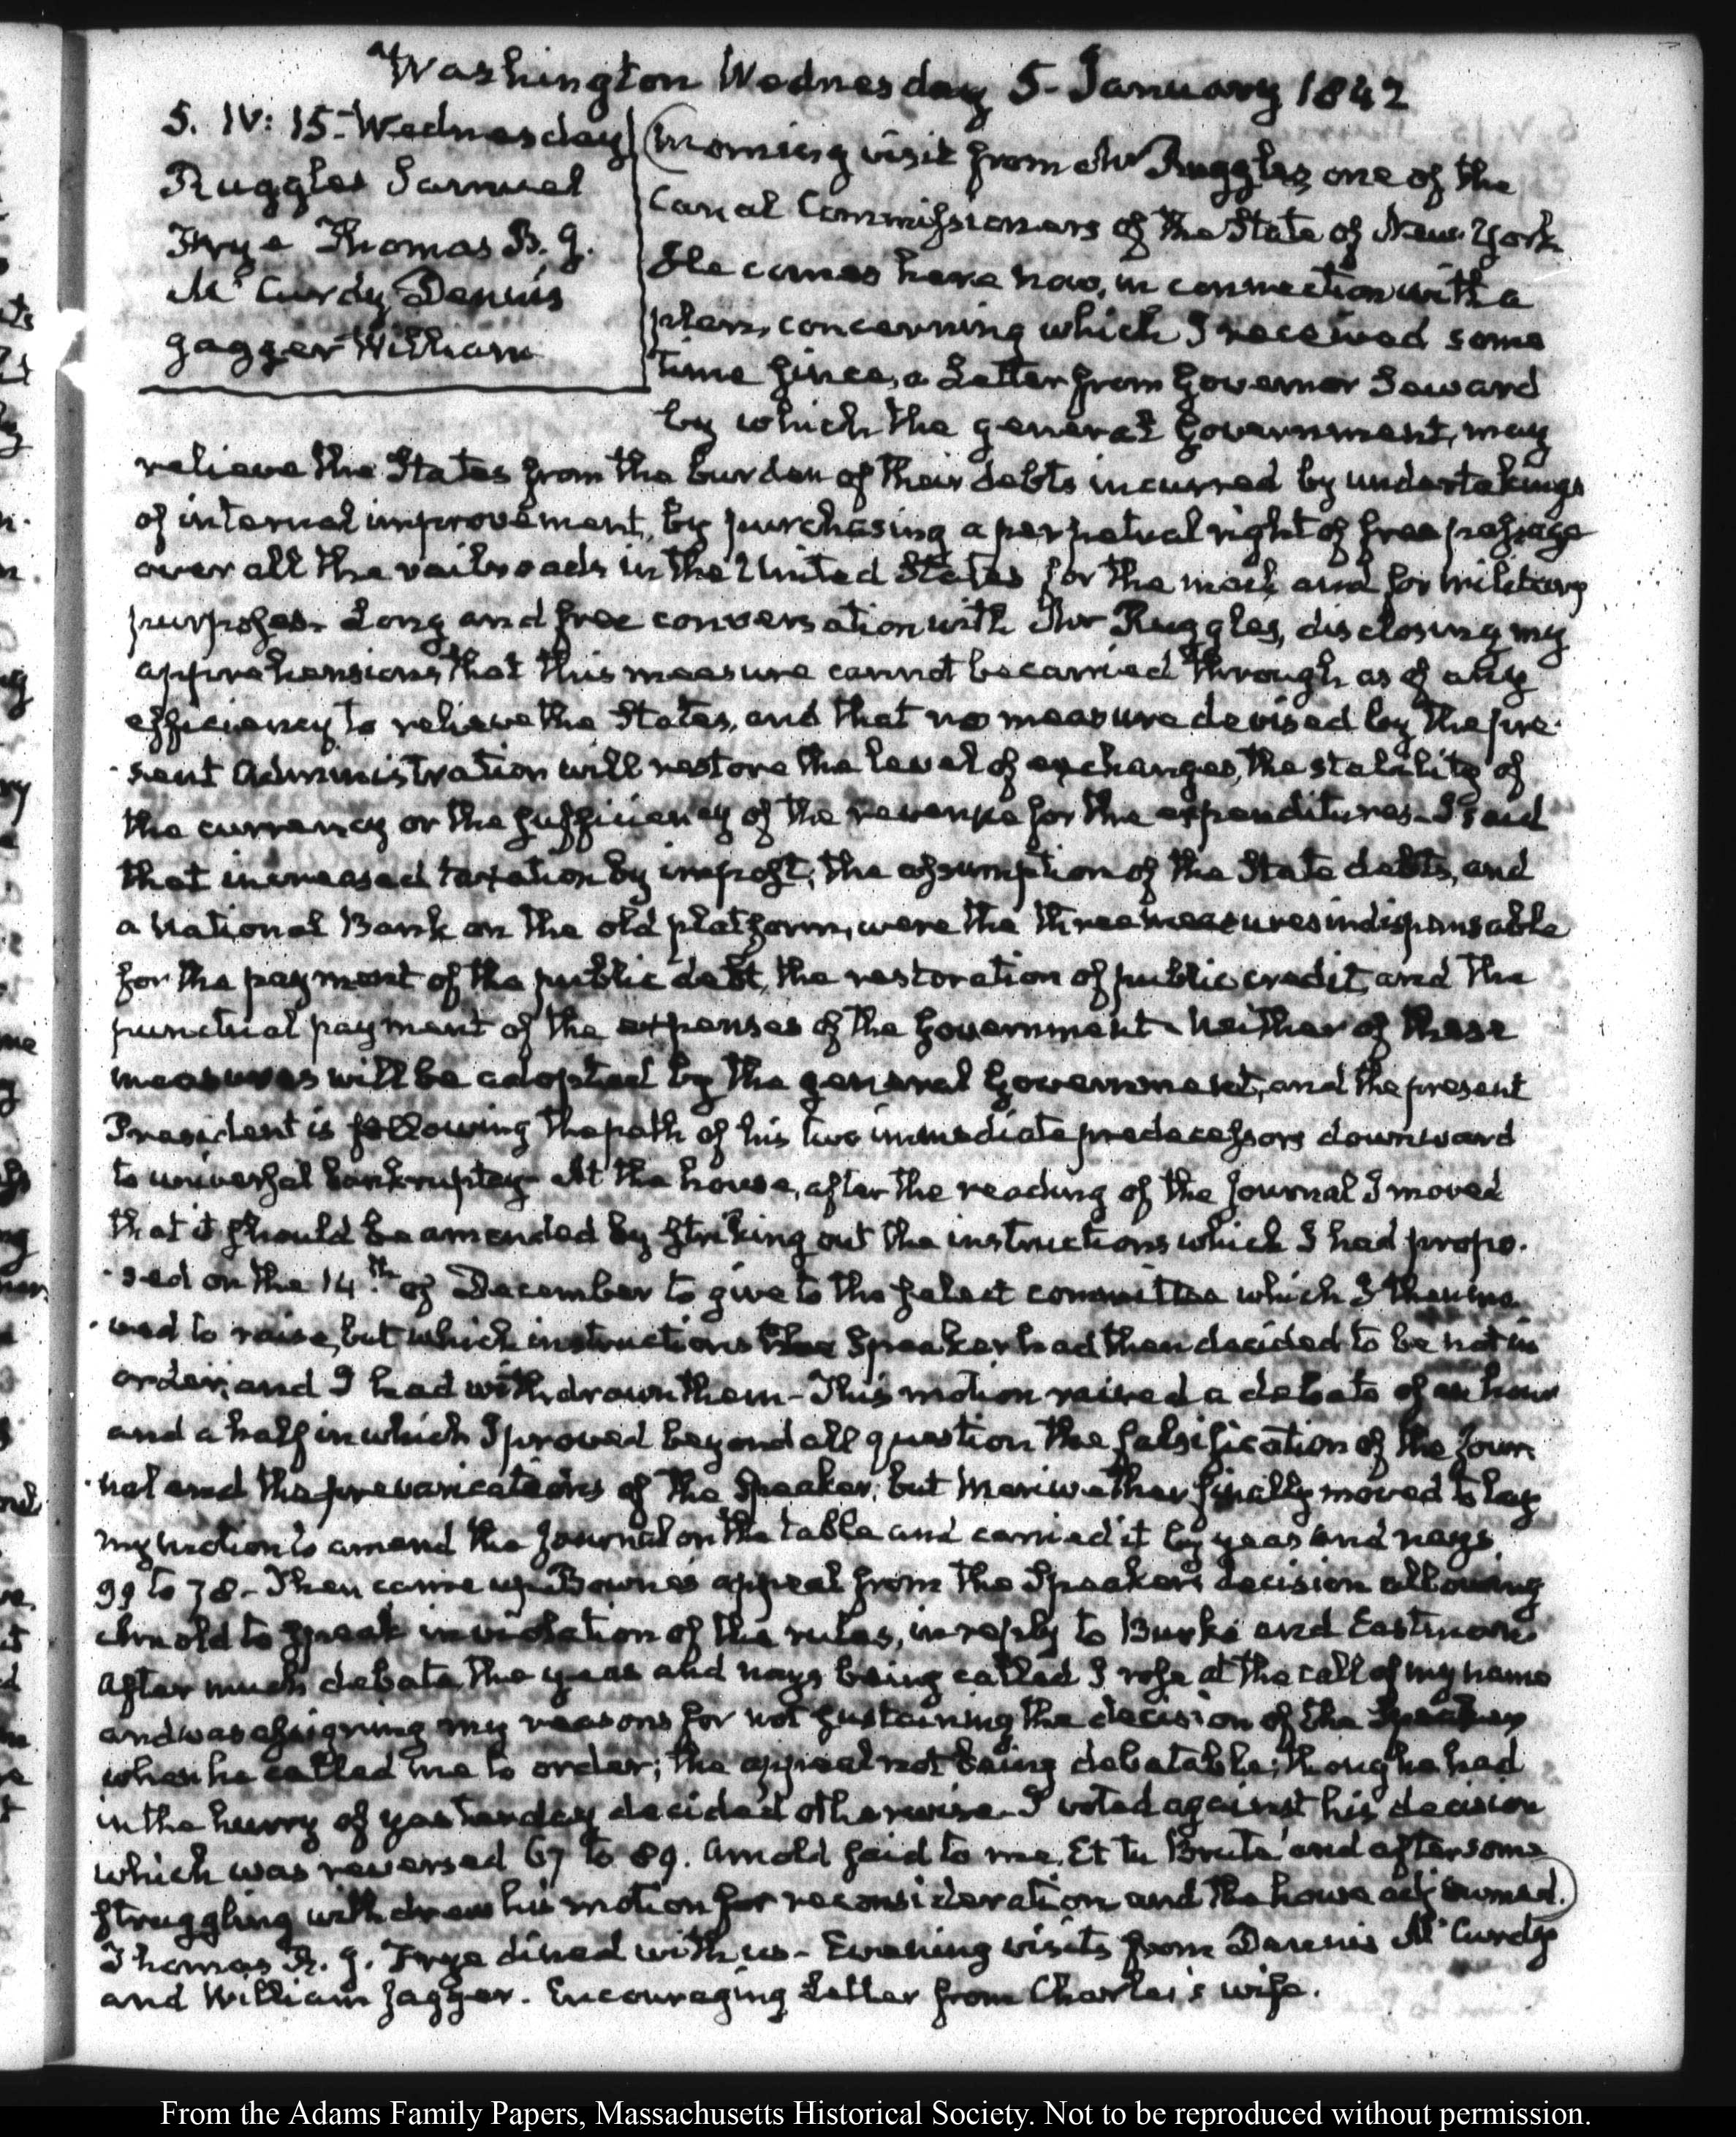 Washington Wednesday 5. January 1842
5. IV: 15. Wednesday
Ruggles Samuel
Frye Thomas B. J.
Mc Curdy Dennis
Jagger William
Morning visit from Mr Ruggles, one of the
Canal Commissioners of the State of New-York
He comes here now, in connection with a
plan, concerning which I received some
time since, a Letter from Governor Seward
by which the general Government, may
relieve the States from the burden of their debts incurred by undertakings
of internal improvement, by purchasing a perpetual right of free passage
over all the railroads in the United States for the mail and for military
purposes. Long and free conversation with Mr Ruggles, disclosing my
apprehensions that this measure cannot be carried through as of any
efficiency to relieve the States, and that no measure devised by the pre-
-sent Administration will restore the level of exchanges, the stability of
the currency or the sufficiency of the revenue for the expenditures. I said
that increased taxation by impost, the assumption of the State debts, and
a National Bank on the old platform, were the three measures indispensable
for the payment of the public debt, the restoration of public credit, and the
punctual payment of the expenses of the Government. Neither of these
measures will be adopted by the general Government, and the present
President is following the path of his two immediate predecessors downward
to universal bankruptcy. At the house, after the reading of the Journal I moved
that it should be amended by striking out the instructions which I had propo-
-sed on the 14.th of December to give to the select committee which I then mo-
-ved to raise, but which instructions the Speaker had then decided to be not in
order, and I had withdrawn them. This motion raised a debate of an hour
and a half in which I proved beyond all question the falsification of the Jour-
-nal and the prevarications of the Speaker, but Meriwether finally moved to lay
my motion to amend the Journal on the table and carried it by yeas and nays
99 to 78. Then came up Bowne's appeal from the Speaker's decision allowing
Arnold to speak in violation of the rules, in reply to Burke and Eastman
After much debate, the yeas and nays being called I rose at the call of my name
and was assigning my reasons for not sustaining the decision of the Speaker
when he called me to order; the appeal not being debatable; though he had
in the hurry of yesterday decided otherwise. I voted against his decision
which was reversed 67 to 89. Arnold said to me, Et tu Brute' and after some
struggling withdrew his motion for reconsideration and the house adjourned.
Thomas B. J. Frye dined with us. Evening visits from Dennis Mc Curdy
and William Jagger. Encouraging Letter from Charles's wife.
From the Adams Family Papers, Massachusetts Historical Society. Not to be reproduced without permission.